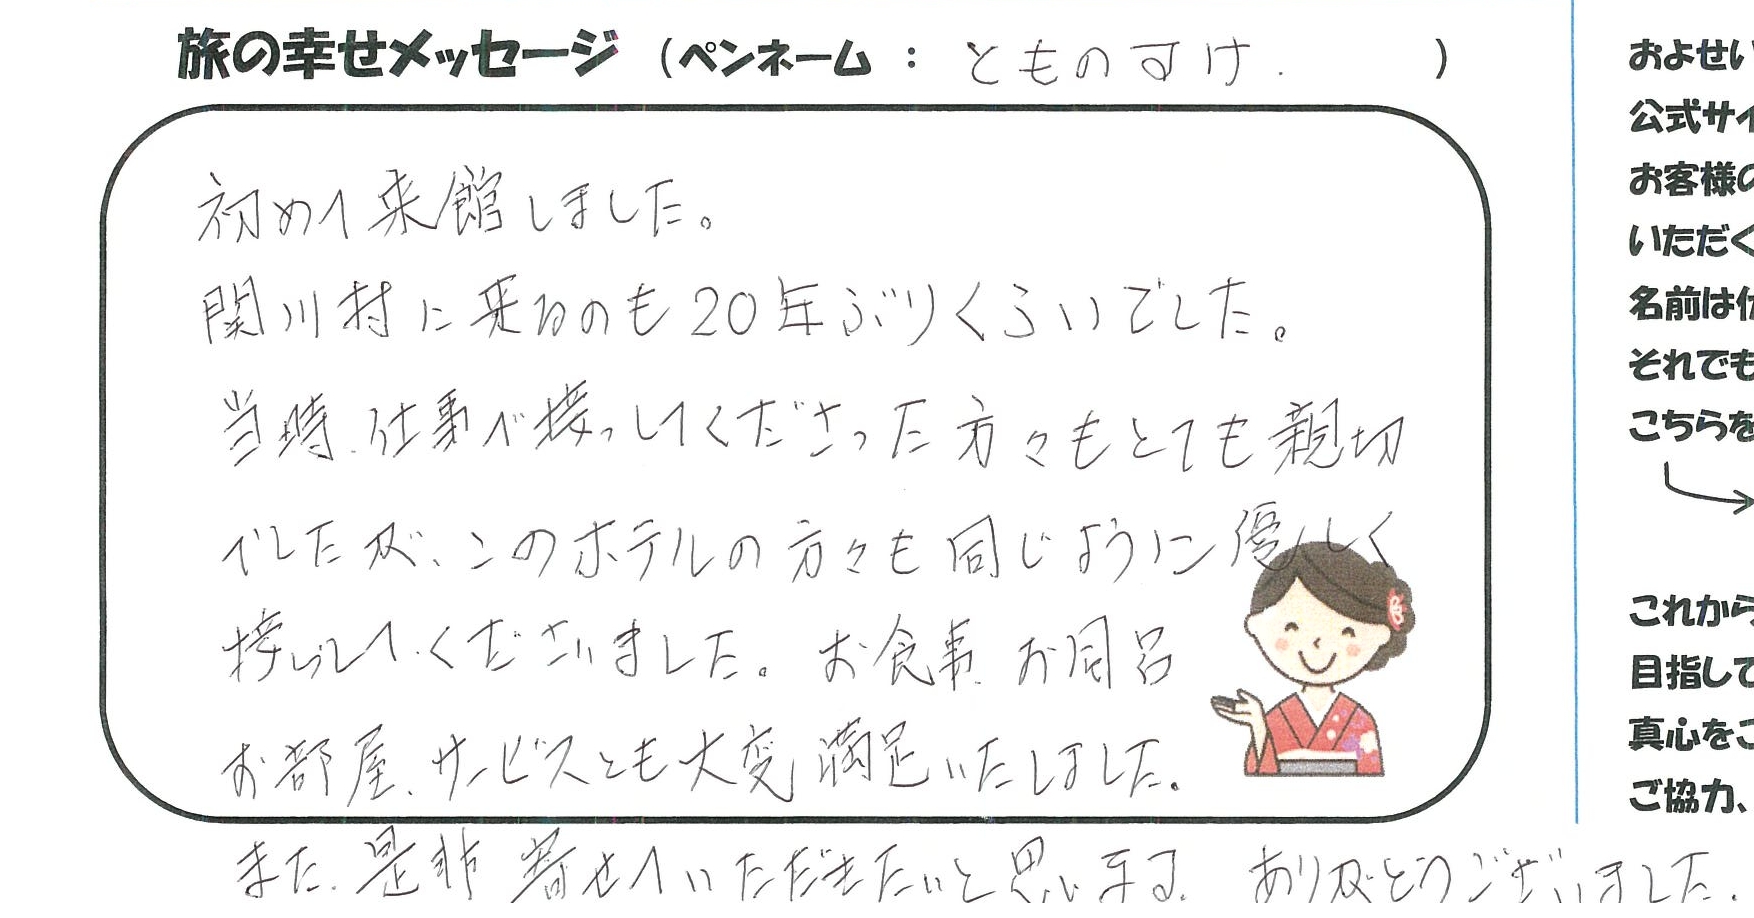 旅の幸せメッセージ（ペンネーム：とものすけ.）
初めて来館しました。
関川村に来るのも20年ぶりくらいでした。
当時、仕事で接してくださった方々もとても親切
でしたが、このホテルの方々も同じように優しく
接してくださいました。お食事、お風呂
お部屋、サービスとも大変満足いたしました。
また、是非寄せていただきたいと思います。ありがとうございました。
およせい
公式サイ
お客様の
いただく
名前は
それでも
こちらを
これから
目指して
真心をこ
ご協力、